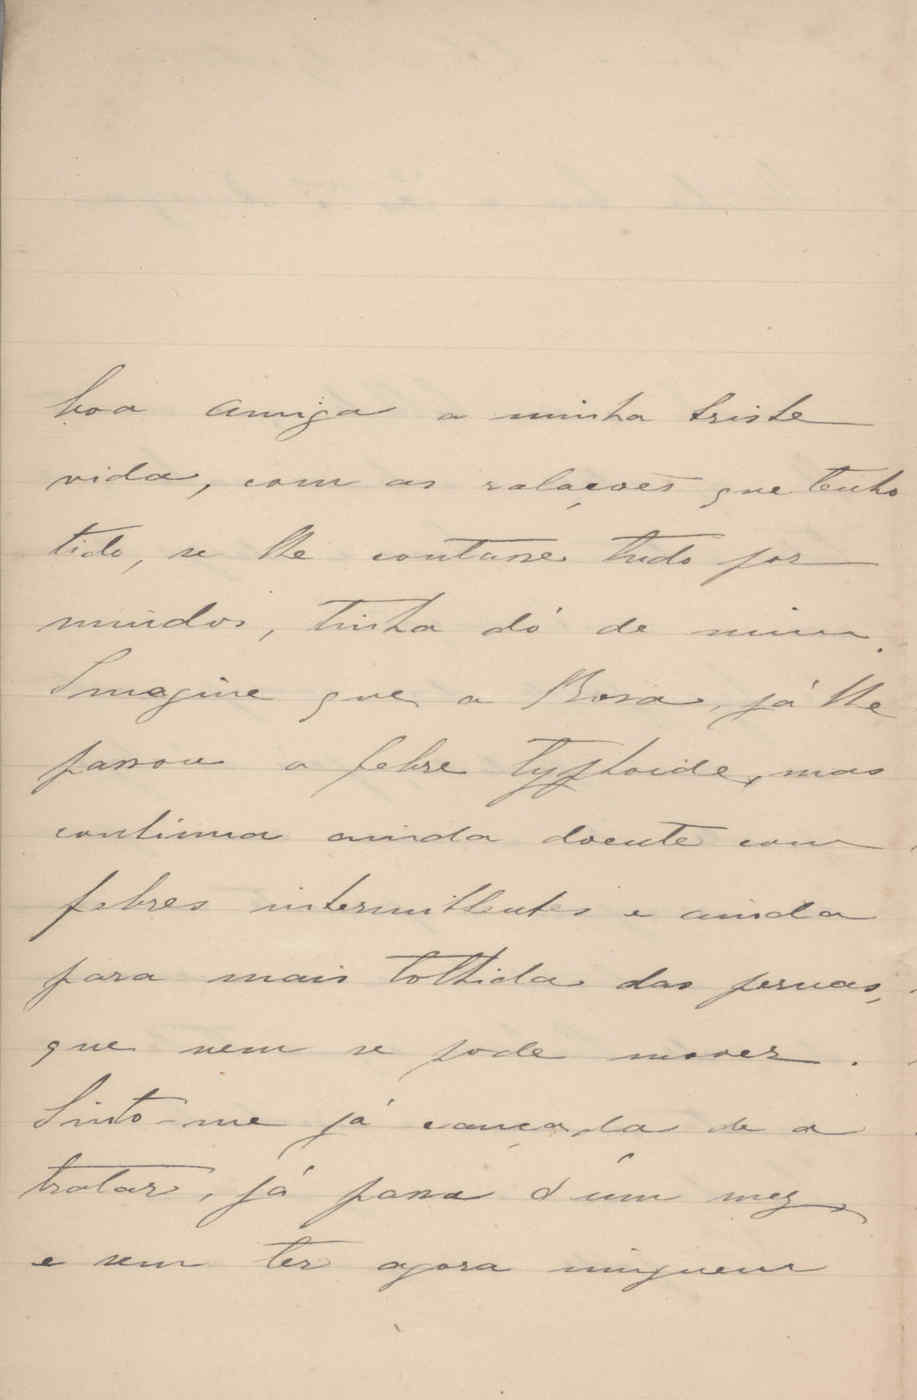 boa amiga a minha triste
vida, com as ralações que tenho
tido, se lhe contasse tudo por
miudos, tinha dó de mim.
Imagine que a Rosa, já lhe
passou a febre typhoide, mas
continua ainda doente com
febres intermittentes e ainda
para mais tolhida das pernas,
que nem se pode mover.
Sinto-me já cançada de a
tratar, já passa d'um mez,
e sem ter agora ninguem